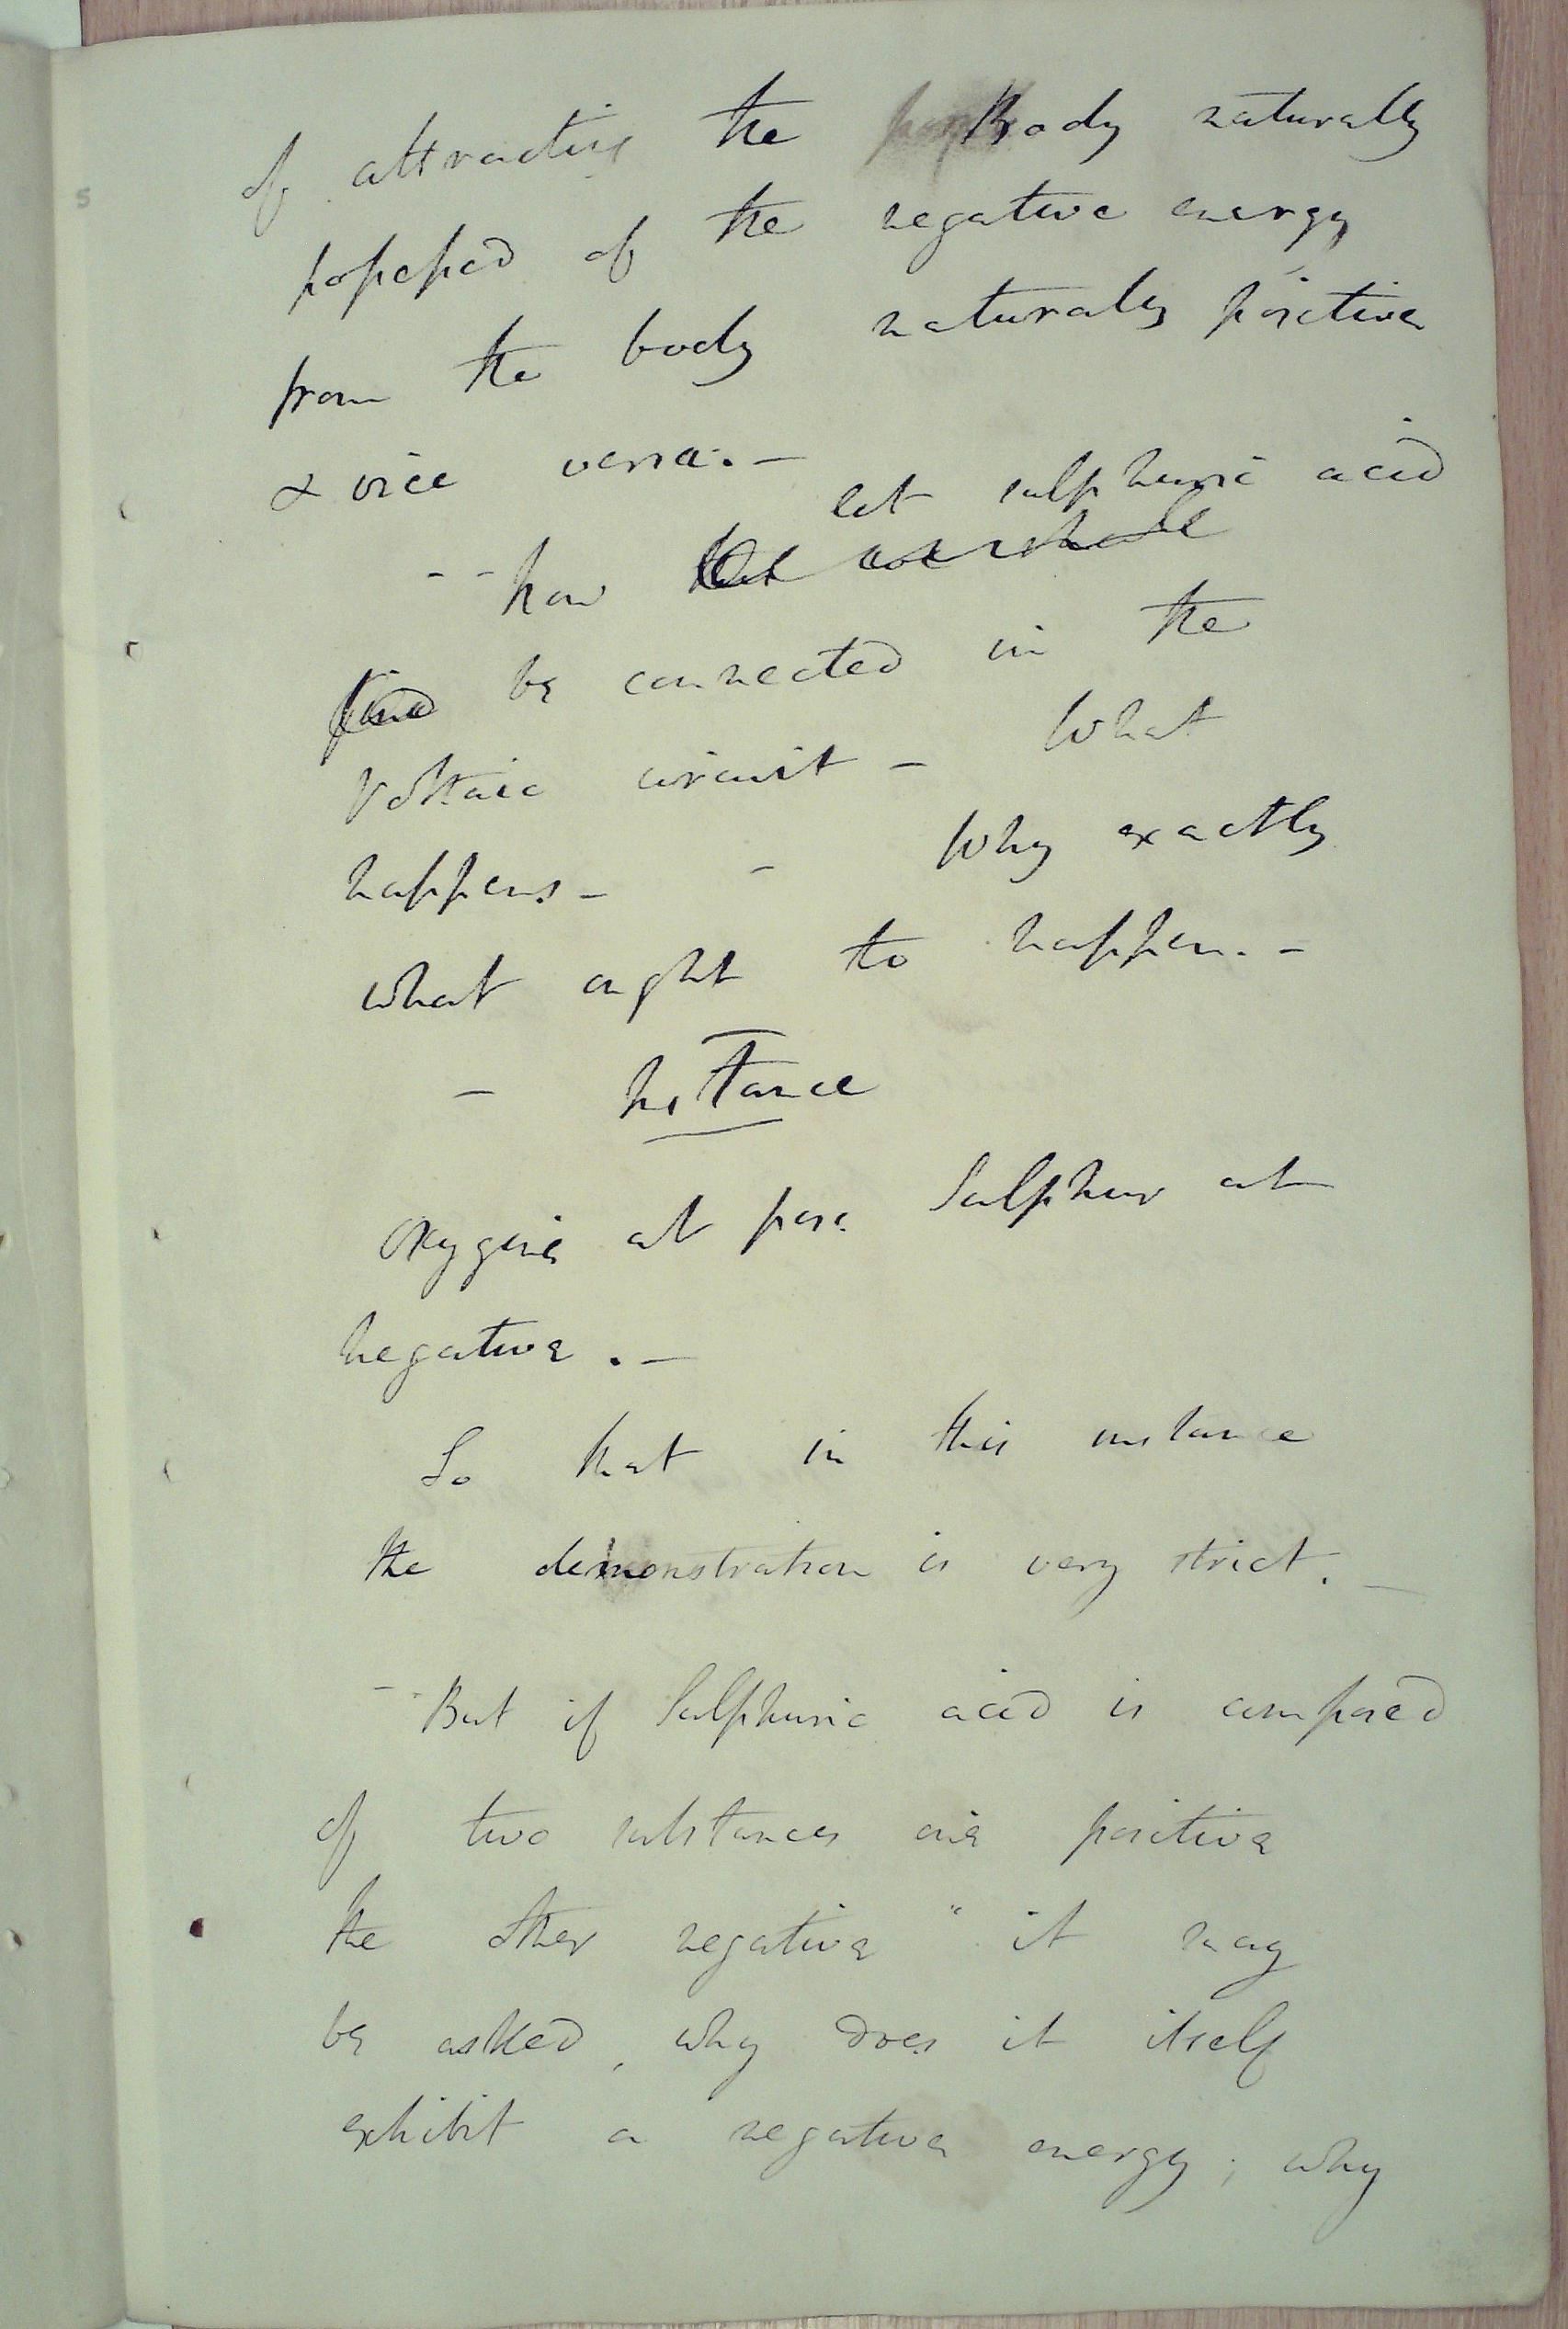 of attracting the Body naturally
possessed of the negative energy
from the body naturally positive
& vice versa. –
let sulphuric acid
– – Now let us shall
find be connected in the
Voltaic circuit – What
happens – – Why exactly
what ought to happen. –
– Instance
Oxygene at pos. Sulphur at
negative. –
So that in this instance
the demonstration is very strict. –
– But if Sulphuric acid is composed
of two substances one positive
the other negative " it may
be asked, why does it itself
exhibit a negative energy; why